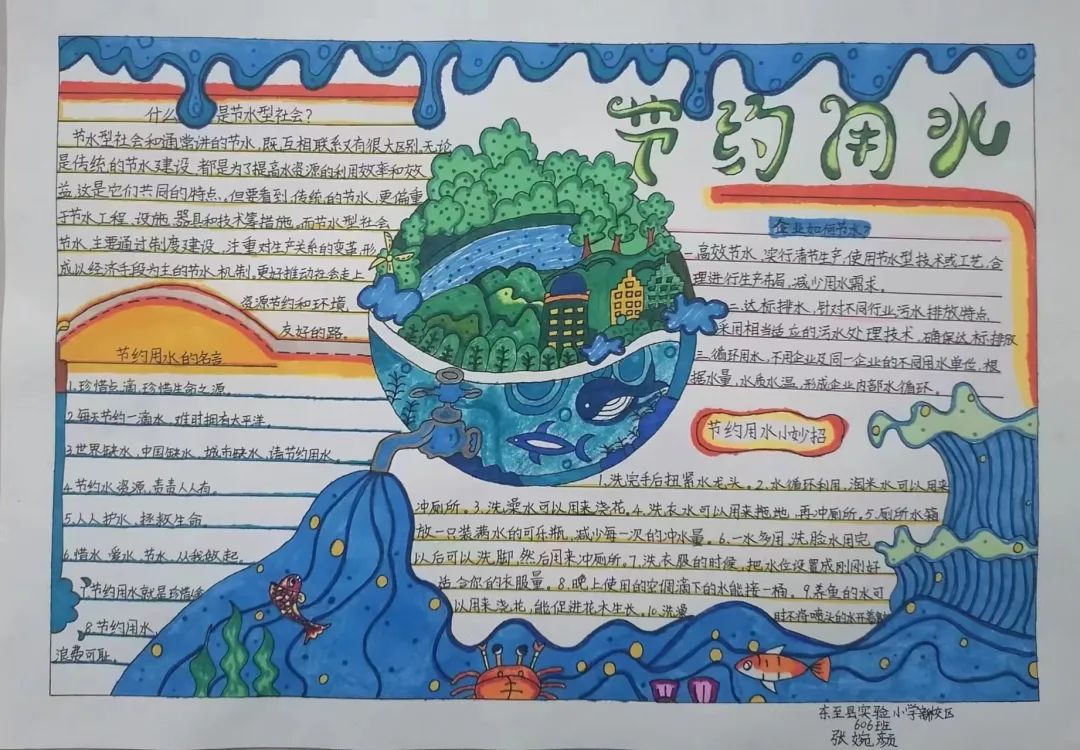 节约用水
什么是节水型社会?
节水型社会和通常讲的节水,既互相联系又有很大区别。无论
是传统的节水建设,都是为了提高水资源的利用效率和效
益,这是它们共同的特点。但要看到,传统的节水,更偏重
于节水工程、设施、器具和技术等措施,而节水型社会
节水,主要通过制度建设,注重对生产关系的变革,形
成以经济手段为主的节水机制,更好推动社会走上
资源节约和环境
友好的路。
节约用水的名言
1.珍惜点滴,珍惜生命之源。
2.每天节约一滴水,难时拥有太平洋。
3.世界缺水,中国缺水,城市缺水,请节约用水。
4.节约水资源,责责人人有。
5.人人护水,拯救生命
6.惜水、爱水、节水,从我做起。
7.节约用水就是珍惜
8.节约用水,
浪费可耻。
企业如何节水?
一.高效节水,实行清节生产,使用节水型技术或工艺,合
理进行生产布局,减少用水需求。
二.达标排水,针对不同行业污水排放特点
采用相当适应的污水处理技术,确保达标排放
三.循环用水,不用企业及同一企业的不同用水单位,根
据水量,水质水温,形成企业内部水循环。
节约用水小妙招
1.洗完手后扭紧水龙头。2.水循环利用,淘米水可以用来
冲厕所。3.洗澡水可以用来浇花。4.洗衣水可以用来拖地,再冲厕所。5.厕所水箱
放一只装满水的可乐瓶,减少每一次的冲水量。6.一水多用,洗脸水用完
以后可以洗脚,然后用来冲厕所。7.洗衣服的时候,把水位设置成刚刚好
适合你的衣服量。8.晚上使用的空调滴下的水能接一桶。9.养鱼的水可
以用来浇花,能促进花木生长。10.洗澡
时不将喷头的水开着
东至县实验小学新校区
606班
张婉颜